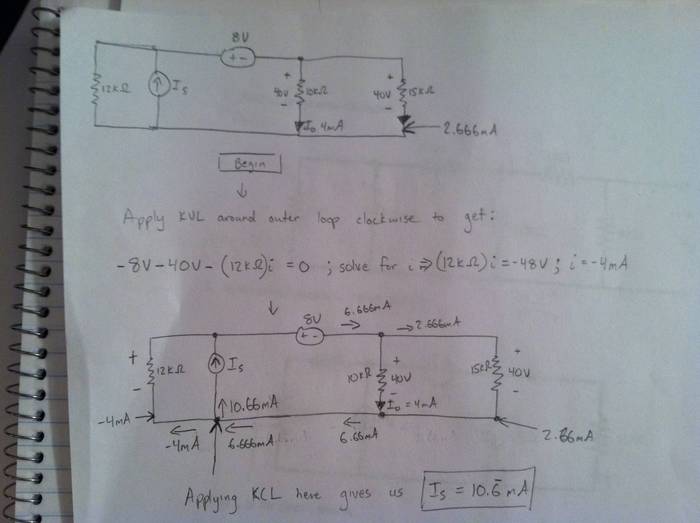 8V
+ -
12kΩ
Is
+
40V
-
10kΩ
+
40V
-
15kΩ
Io 4mA
2.666mA
Begin
↓
Apply KVL around outer loop clockwise to get:
-8V-40V-(12kΩ)i = 0 ; solve for i ⇒ (12kΩ)i = -48V ; i = -4mA
↓
6.666mA
→
8V
+ -
→ 2.666mA
+
12kΩ
-
Is
10kΩ
+
40V
-
15kΩ
+
40V
-
↑ 10.66mA
Io = 4mA
-4mA
←
-4mA
←
6.666mA
←
6.66mA
2.66mA
Applying KCL here gives us Is = 10.6̄ mA